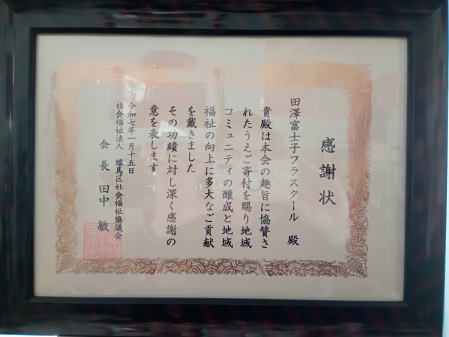 感謝状
田澤富士子フラスクール 殿
貴殿は本会の趣旨に協賛さ
れたうえご寄付を賜り地域
コミュニティの醸成と地域
福祉の向上に多大なご貢献
を戴きました
その功績に対し深く感謝の
意を表します
令和七年一月十五日
社会福祉法人 練馬区社会福祉協議会
会長 田中 敏